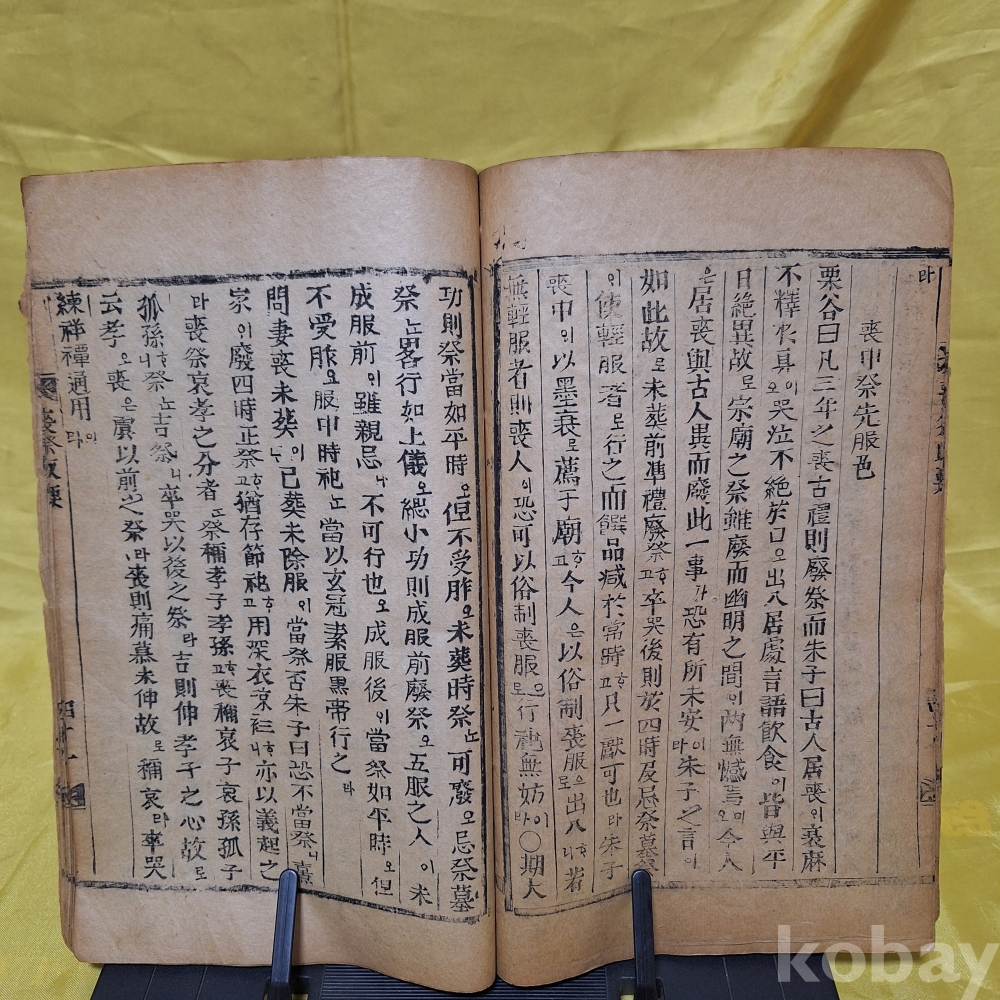 라
喪中祭先服色
栗谷曰凡三年之喪古禮則廢祭而朱子曰古人居喪의衰麻
不釋身이오哭泣不絶於口으出入居處言語飮食이皆與平
日絶異故로宗廟之祭雖廢而幽明之間의兩無憾焉이오今人
은居喪與古人異而廢此一事가恐有所未安이라朱子之言이
如此故로未葬前準禮廢祭고卒哭後則於四時及忌祭墓祭
의使輕服者로行之而饌品減於常時고只一獻可也라朱子
喪中의以墨衰로薦于廟고今人은以俗制喪服로出入리者
無輕服者則喪人의恐可以俗制喪服으로行祀無妨이바○期大
功則祭當如平時오但不受胙오未葬時祭可廢오忌祭墓
祭畧行如上儀오緦小功則成服前廢祭오五服之人이未
成服前의雖親忌니不可行也오成服後이當祭如平時오但
不受胙요服中時祀當以玄冠素服黑帶行之라
問妻喪未葬이已葬未除服이當祭否朱子曰恐不當祭니熹
家이廢四時正祭고猶存節祀고用深衣凉衫니亦以義起之
라喪祭哀孝之分者祭禰孝子孝孫고喪禰哀子哀孫孤子
孤孫니祭吉祭니卒哭以後之祭라吉則伸孝子之心故로
云孝오喪은虞以前之祭라喪則痛慕未伸故로禰哀라卒哭
練祥禫通用이라
喪祭
四十一
kobay